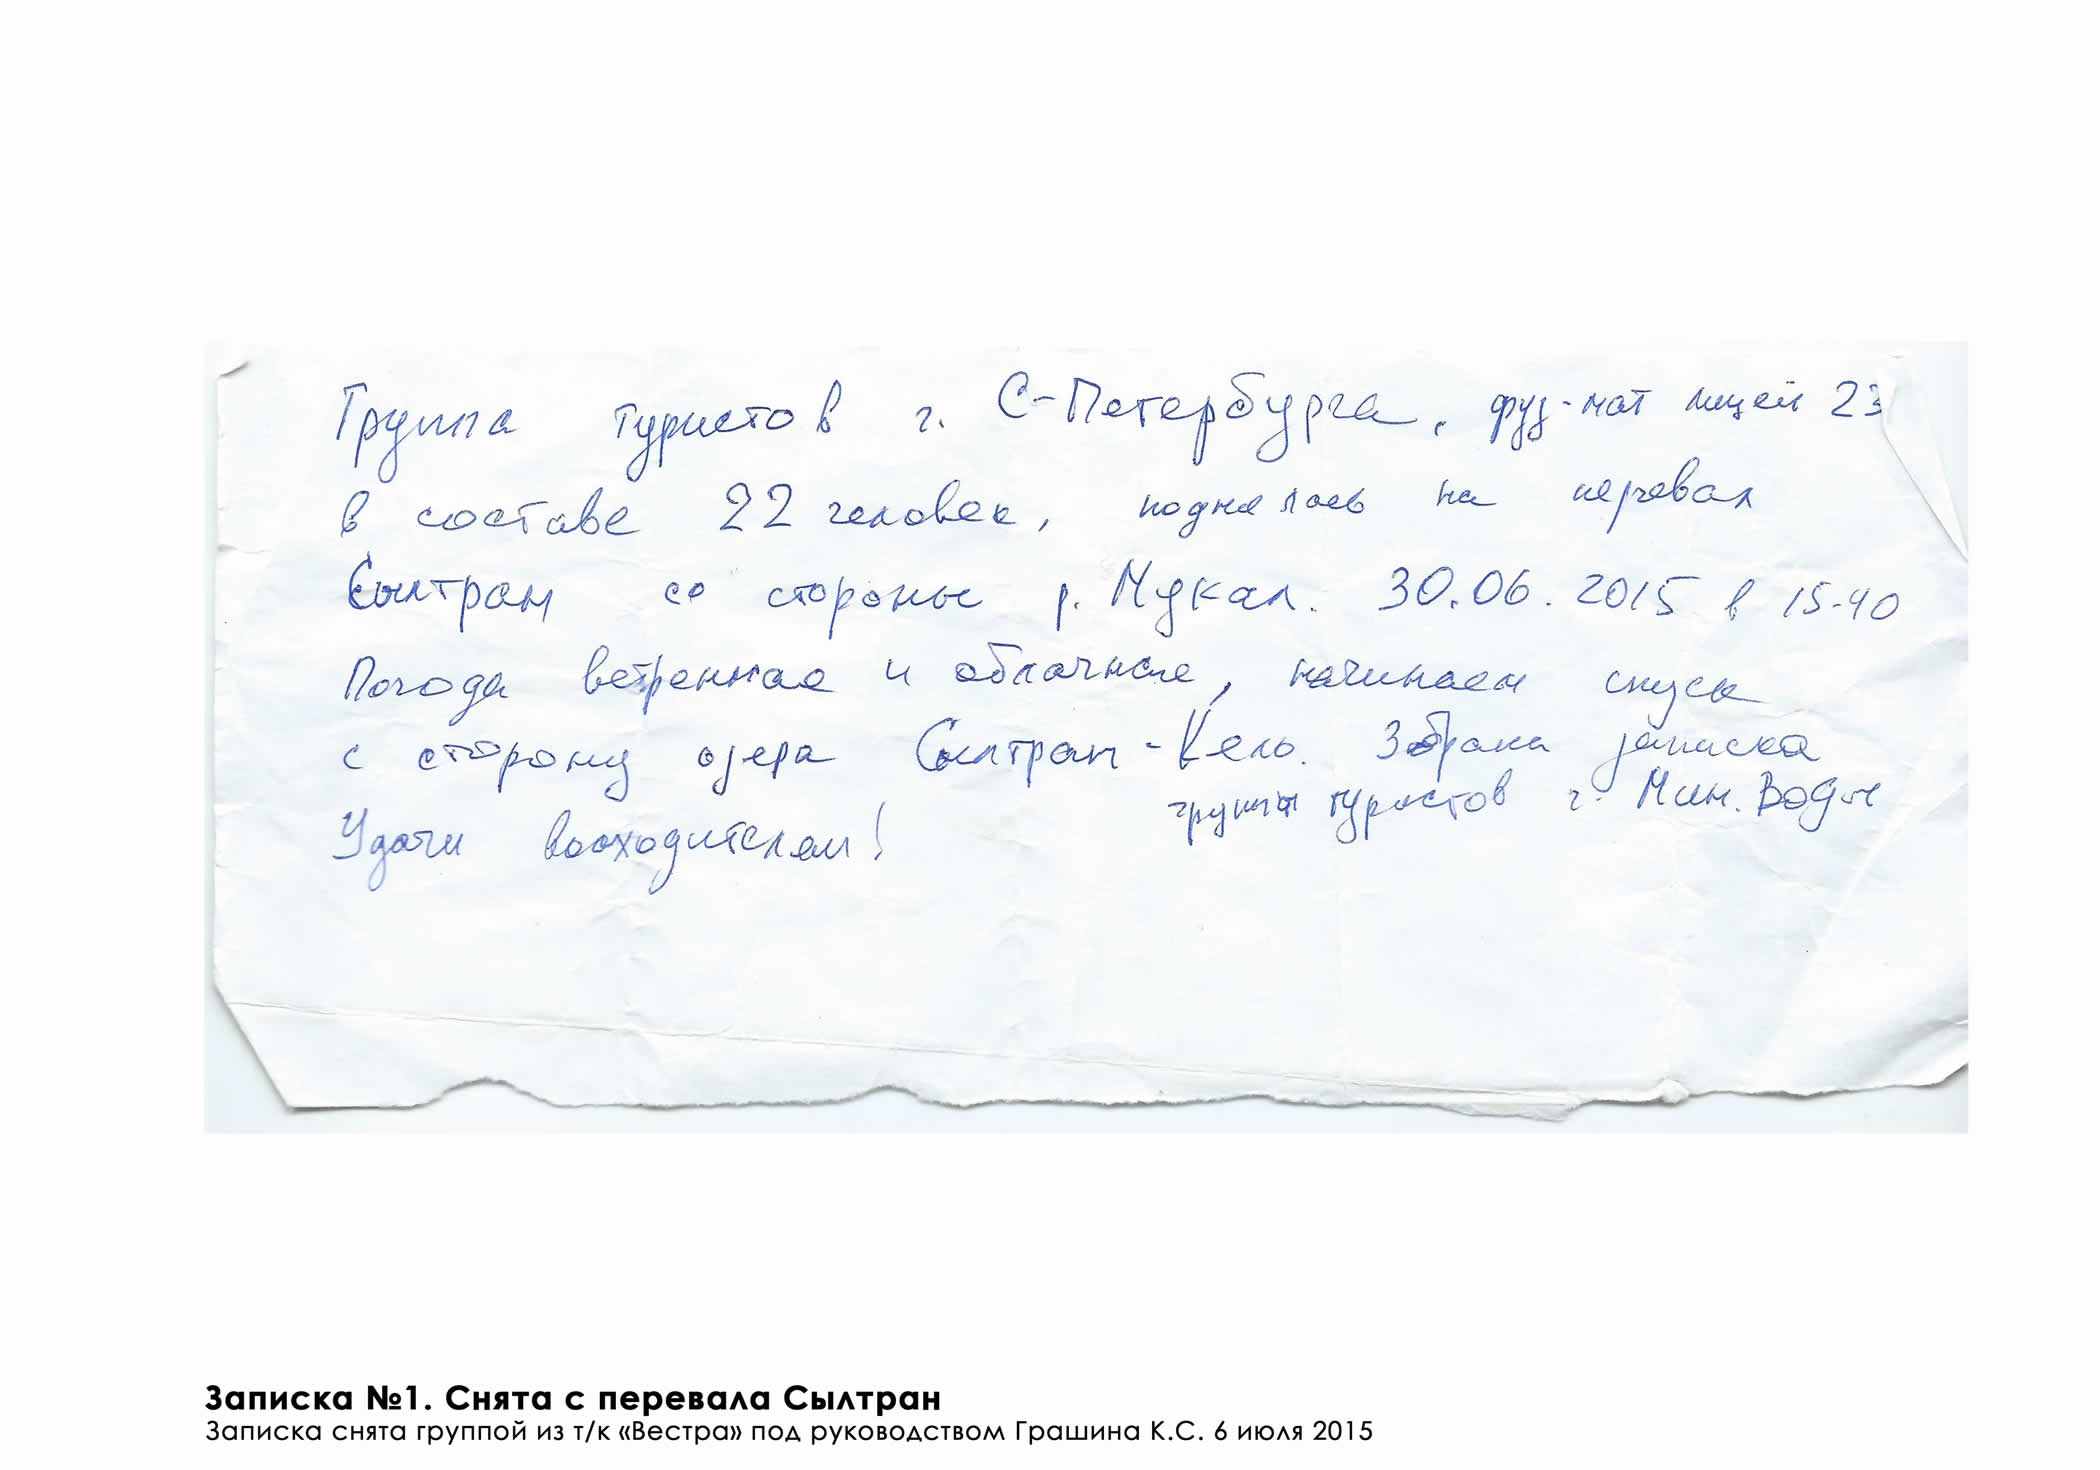 Группа туристов г. С-Петербурга, физ-мат лицей 23
в составе 22 человек, поднялась на перевал
Сылтран со стороны р. Мукал. 30.06.2015 в 15-40
Погода ветренная и облачная, начинаем спуск
с сторону озера Сылтран-Кель. Забрана записка
группы туристов г. Мин. Воды
Удачи восходителям!
Записка №1. Снята с перевала Сылтран
Записка снята группой из т/к «Вестра» под руководством Грашина К.С. 6 июля 2015